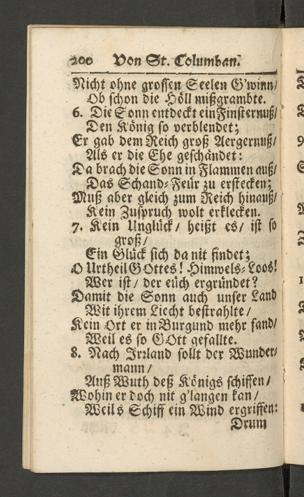 200 Von St. Columban.
Nicht ohne grossen Seelen G'winn/
Ob schon die Höll mißgrambte.
6. Die Sonn entdeckt ein Finsternuß/
Den König so verblendet;
Er gab dem Reich groß Aergernuß/
Als er die Ehe geschändet:
Da brach die Sonn in Flammen auß/
Das Schand-Feür zu erstecken;
Muß aber gleich zum Reich hinauß/
Kein Zuspruch wolt erklecken.
7. Kein Unglück/ heißt es/ ist so
groß/
Ein Glück sich da nit findet;
O Urtheil GOttes! Himmels-Loos!
Wer ist/ der eüch ergründet?
Damit die Sonn auch unser Land
Mit ihrem Liecht bestrahlte/
Kein Ort er in Burgund mehr fand/
Weil es so GOtt gefallte.
8. Nach Irrland sollt der Wunder-
mann/
Auß Wuth deß Königs schiffen/
Wohin er doch nit g'langen kan/
Weils Schiff ein Wind ergriffen:
Drum